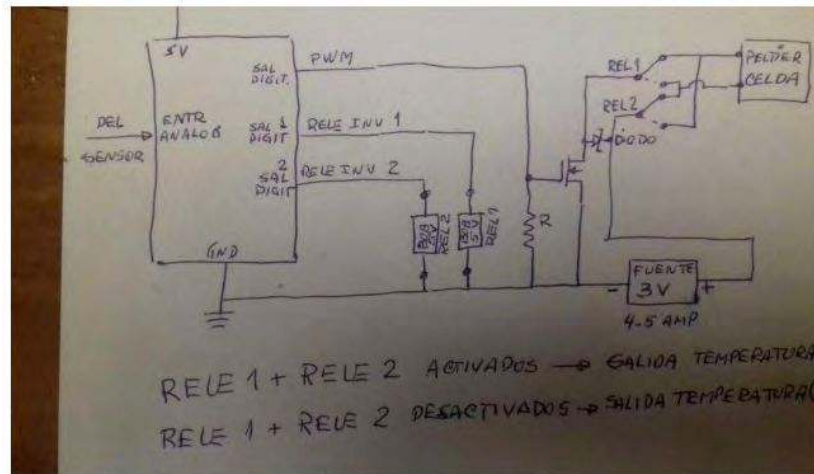 5V
SAL
DIGIT.
PWM
DEL
SENSOR
ENTR
ANALOG
SAL 1
DIGIT
RELE INV 1
2
SAL
DIGIT
RELE INV 2
GND
BOB
5V
REL2
BOB
5V
REL1
R
REL1
REL2
DIODO
PELTIER
CELDA
FUENTE
- 3V +
4-5 AMP
RELE 1 + RELE 2 ACTIVADOS → SALIDA TEMPERATURA
RELE 1 + RELE 2 DESACTIVADOS → SALIDA TEMPERATURA